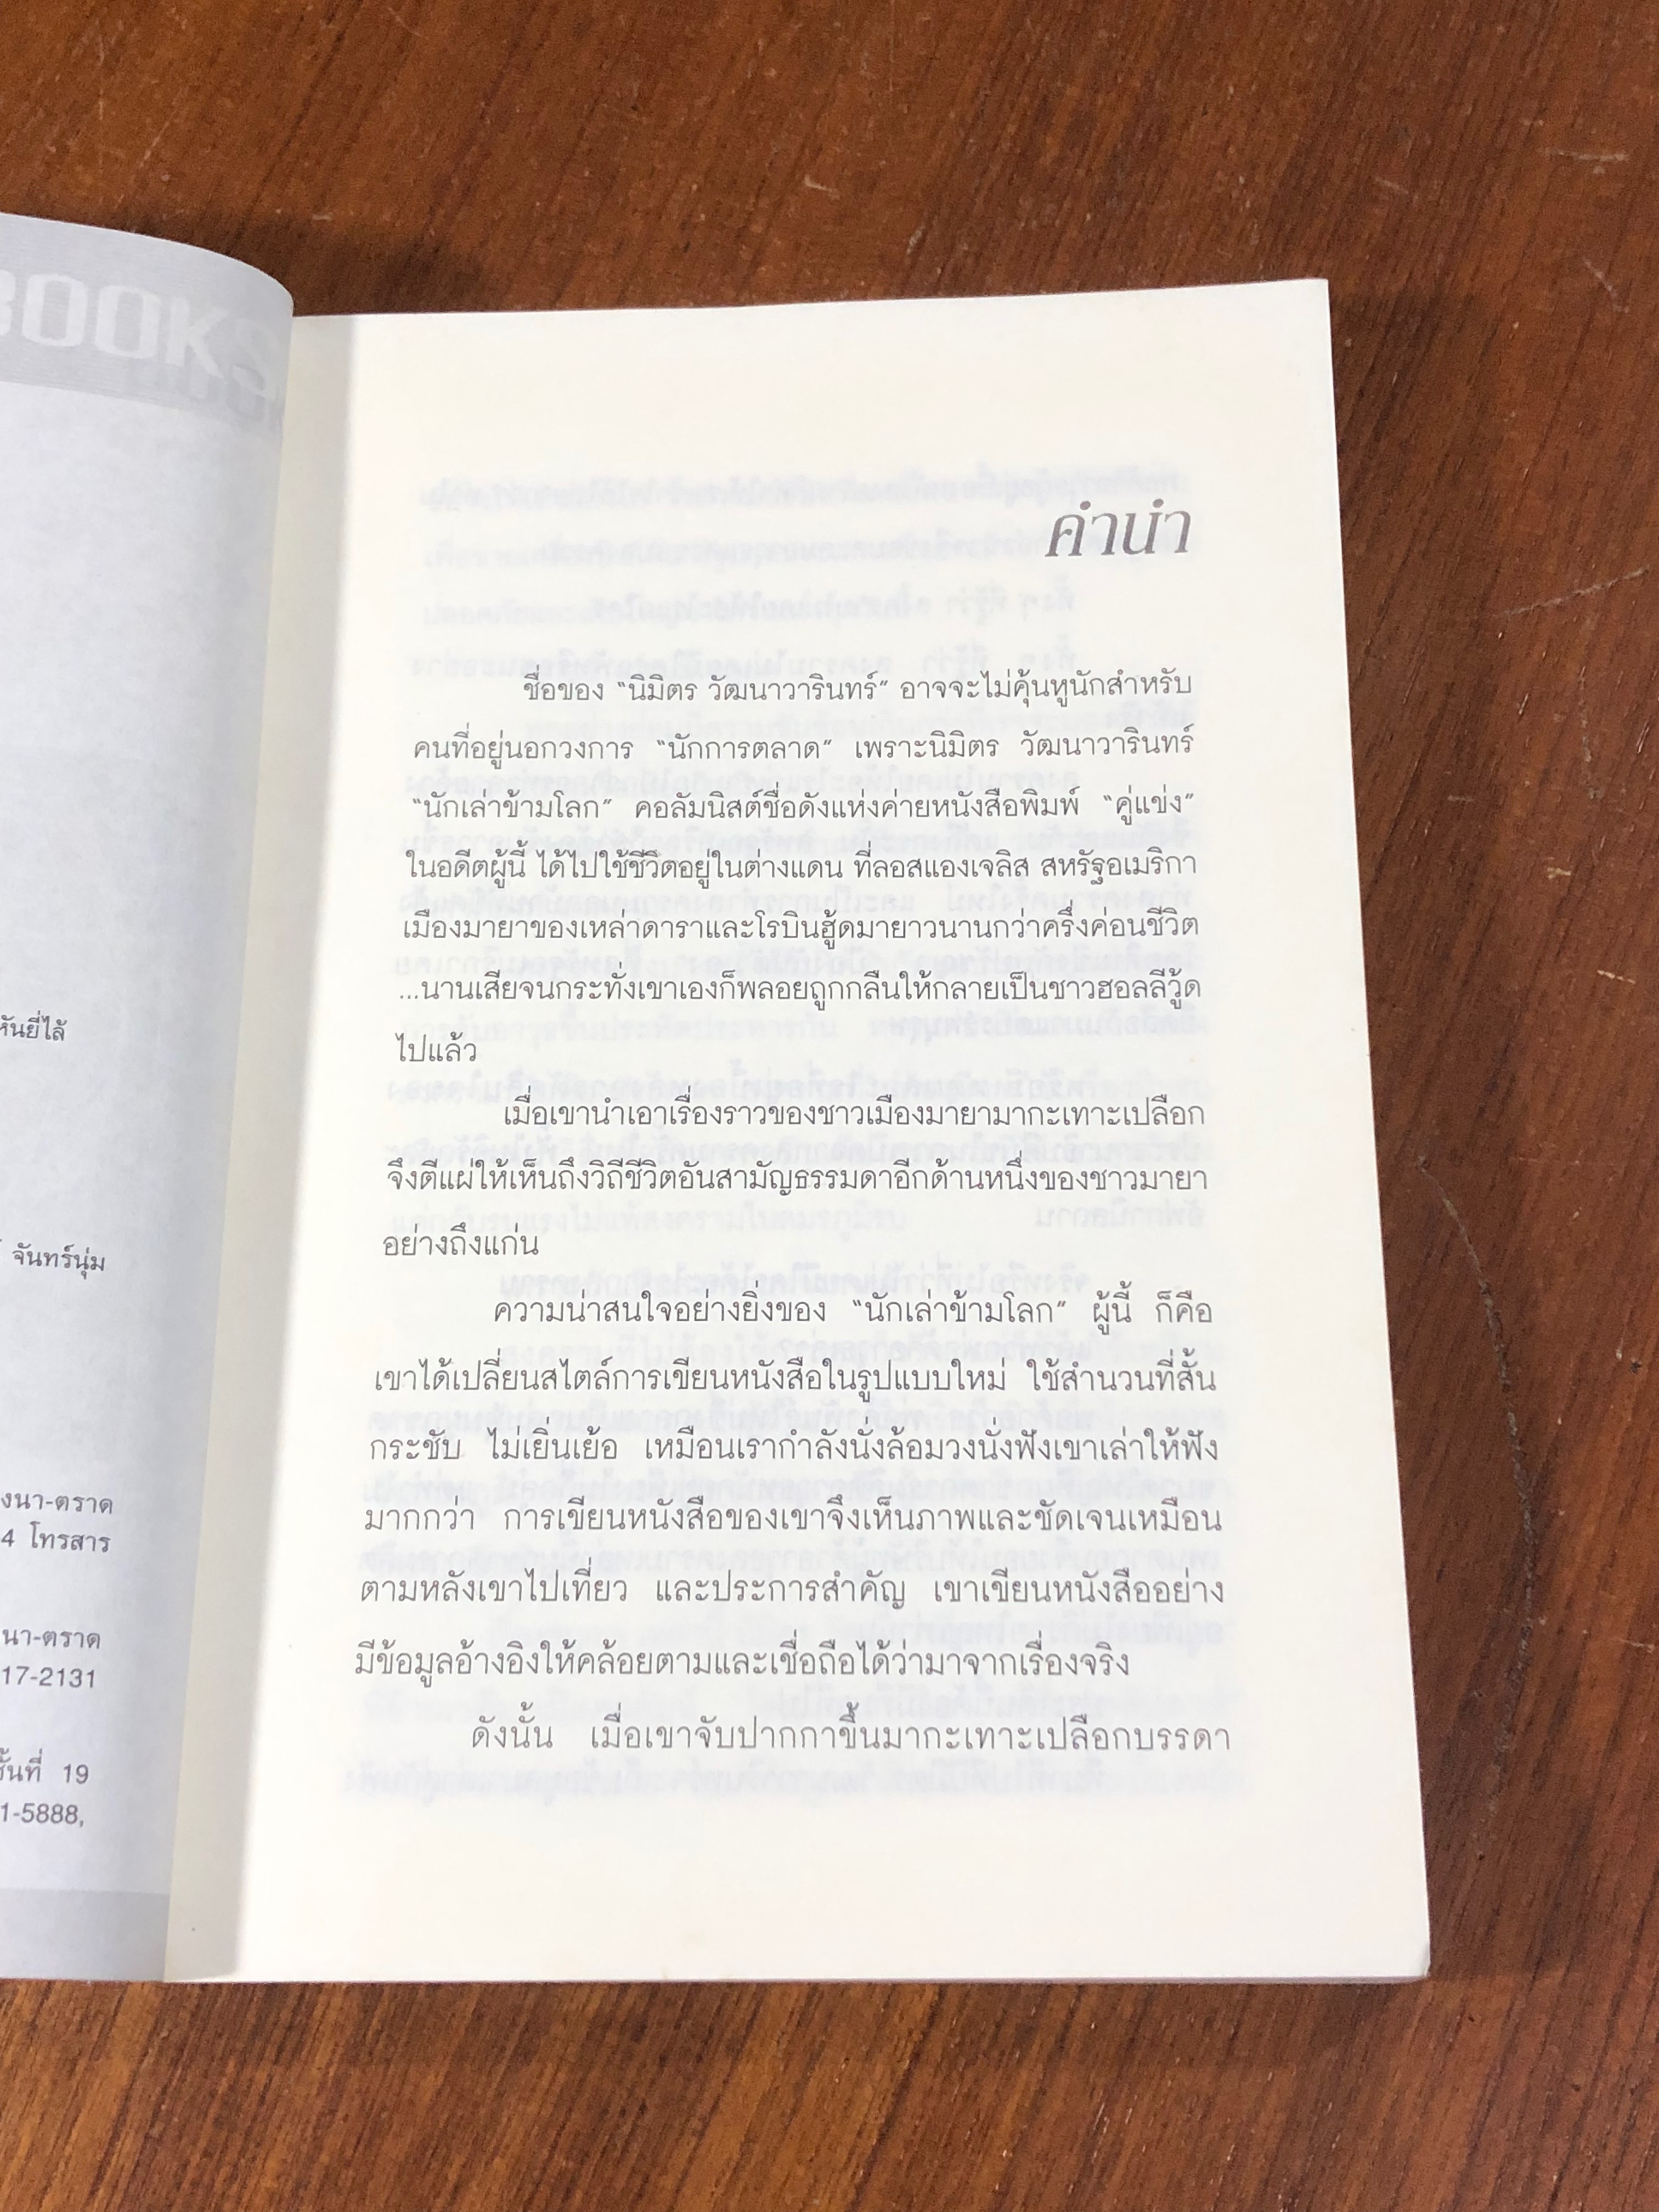 BOOKS
หันยี่ไล้
จันทร์นุ่ม
งนา-ตราด
4 โทรสาร
นา-ตราด
17-2131
ชั้นที่ 19
1-5888,
คำนำ
ชื่อของ “นิมิตร วัฒนาวารินทร์” อาจจะไม่คุ้นหูนักสำหรับ
คนที่อยู่นอกวงการ “นักการตลาด” เพราะนิมิตร วัฒนาวารินทร์
“นักเล่าข้ามโลก” คอลัมนิสต์ชื่อดังแห่งค่ายหนังสือพิมพ์ “คู่แข่ง”
ในอดีตผู้นี้ ได้ไปใช้ชีวิตอยู่ในต่างแดน ที่ลอสแองเจลิส สหรัฐอเมริกา
เมืองมายาของเหล่าดาราและโรบินฮู้ดมายาวนานกว่าครึ่งค่อนชีวิต
...นานเสียจนกระทั่งเขาเองก็พลอยถูกกลืนให้กลายเป็นชาวฮอลลีวู้ด
ไปแล้ว
เมื่อเขานำเอาเรื่องราวของชาวเมืองมายามากะเทาะเปลือก
จึงตีแผ่ให้เห็นถึงวิถีชีวิตอันสามัญธรรมดาอีกด้านหนึ่งของชาวมายา
อย่างถึงแก่น
ความน่าสนใจอย่างยิ่งของ “นักเล่าข้ามโลก” ผู้นี้ ก็คือ
เขาได้เปลี่ยนสไตล์การเขียนหนังสือในรูปแบบใหม่ ใช้สำนวนที่สั้น
กระชับ ไม่เยิ่นเย้อ เหมือนเรากำลังนั่งล้อมวงนั่งฟังเขาเล่าให้ฟัง
มากกว่า การเขียนหนังสือของเขาจึงเห็นภาพและชัดเจนเหมือน
ตามหลังเขาไปเที่ยว และประการสำคัญ เขาเขียนหนังสืออย่าง
มีข้อมูลอ้างอิงให้คล้อยตามและเชื่อถือได้ว่ามาจากเรื่องจริง
ดังนั้น เมื่อเขาจับปากกาขึ้นมากะเทาะเปลือกบรรดา